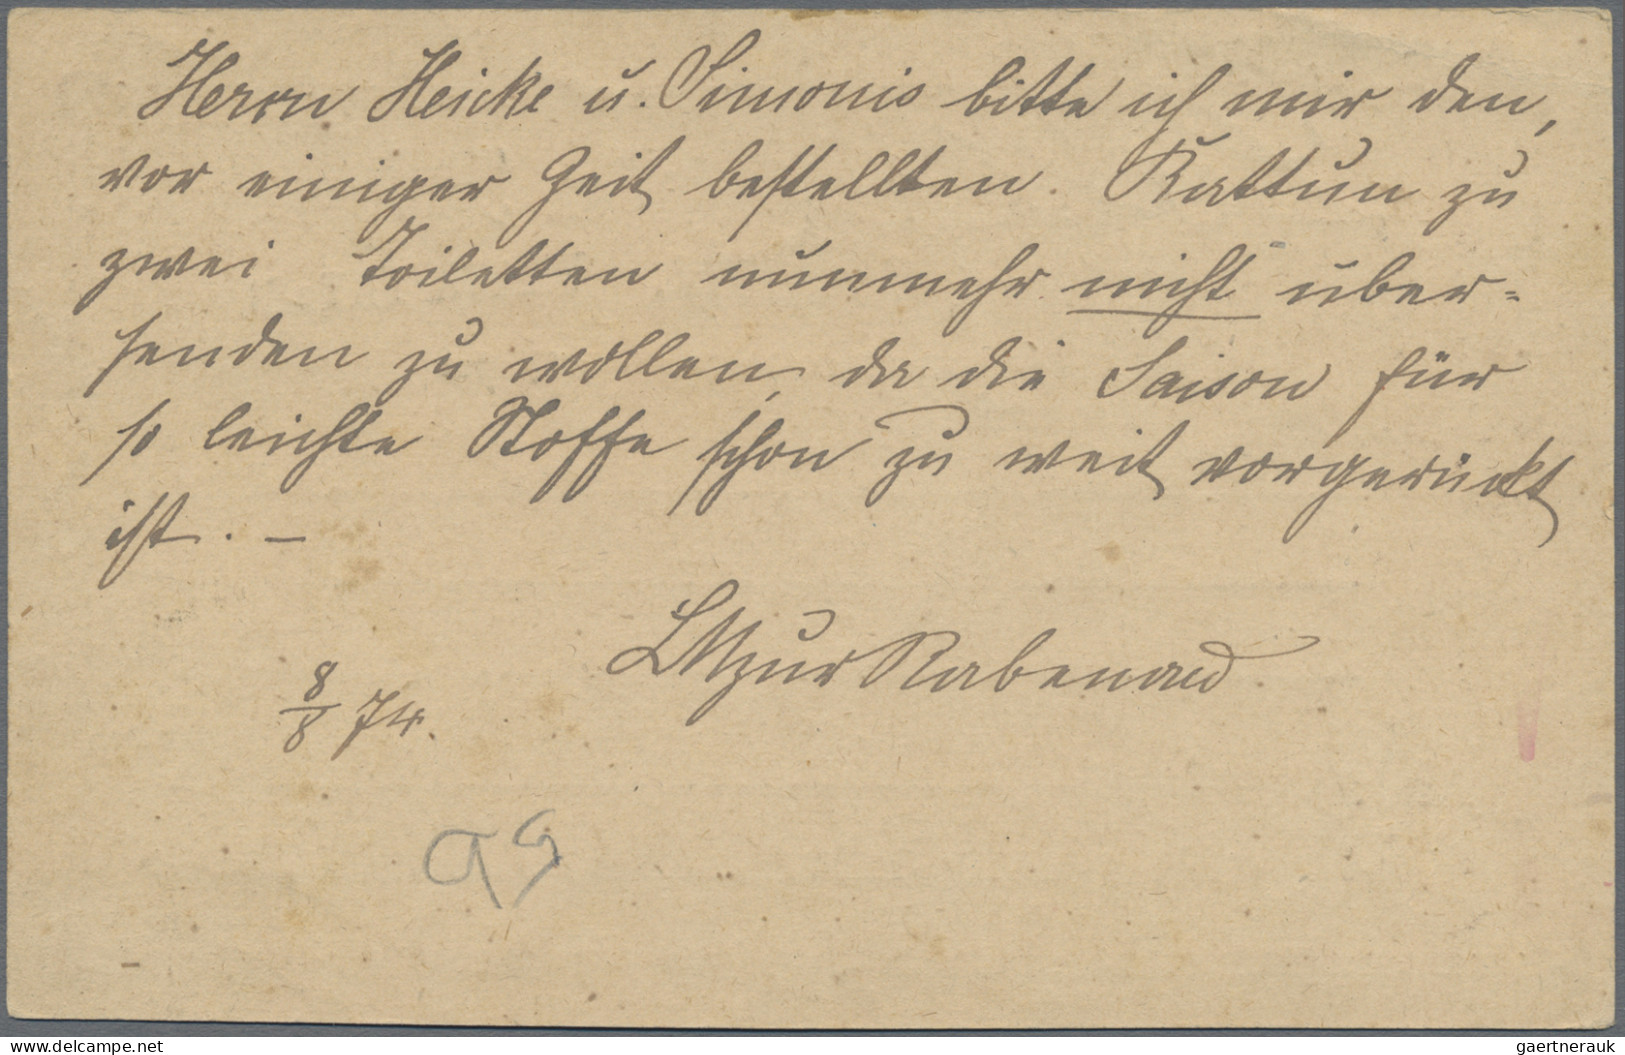 Herrn Heicke u. Simonis bitte ich mir den,
vor einiger Zeit bestellten Kattun zu
zwei Toiletten nunmehr nicht über=
senden zu wollen, da die Saison für
so leichte Stoffe schon zu weit vorgerückt
ist. —
zur Rabenau
8/8 74.
www.delcampe.net
gaertnerauk